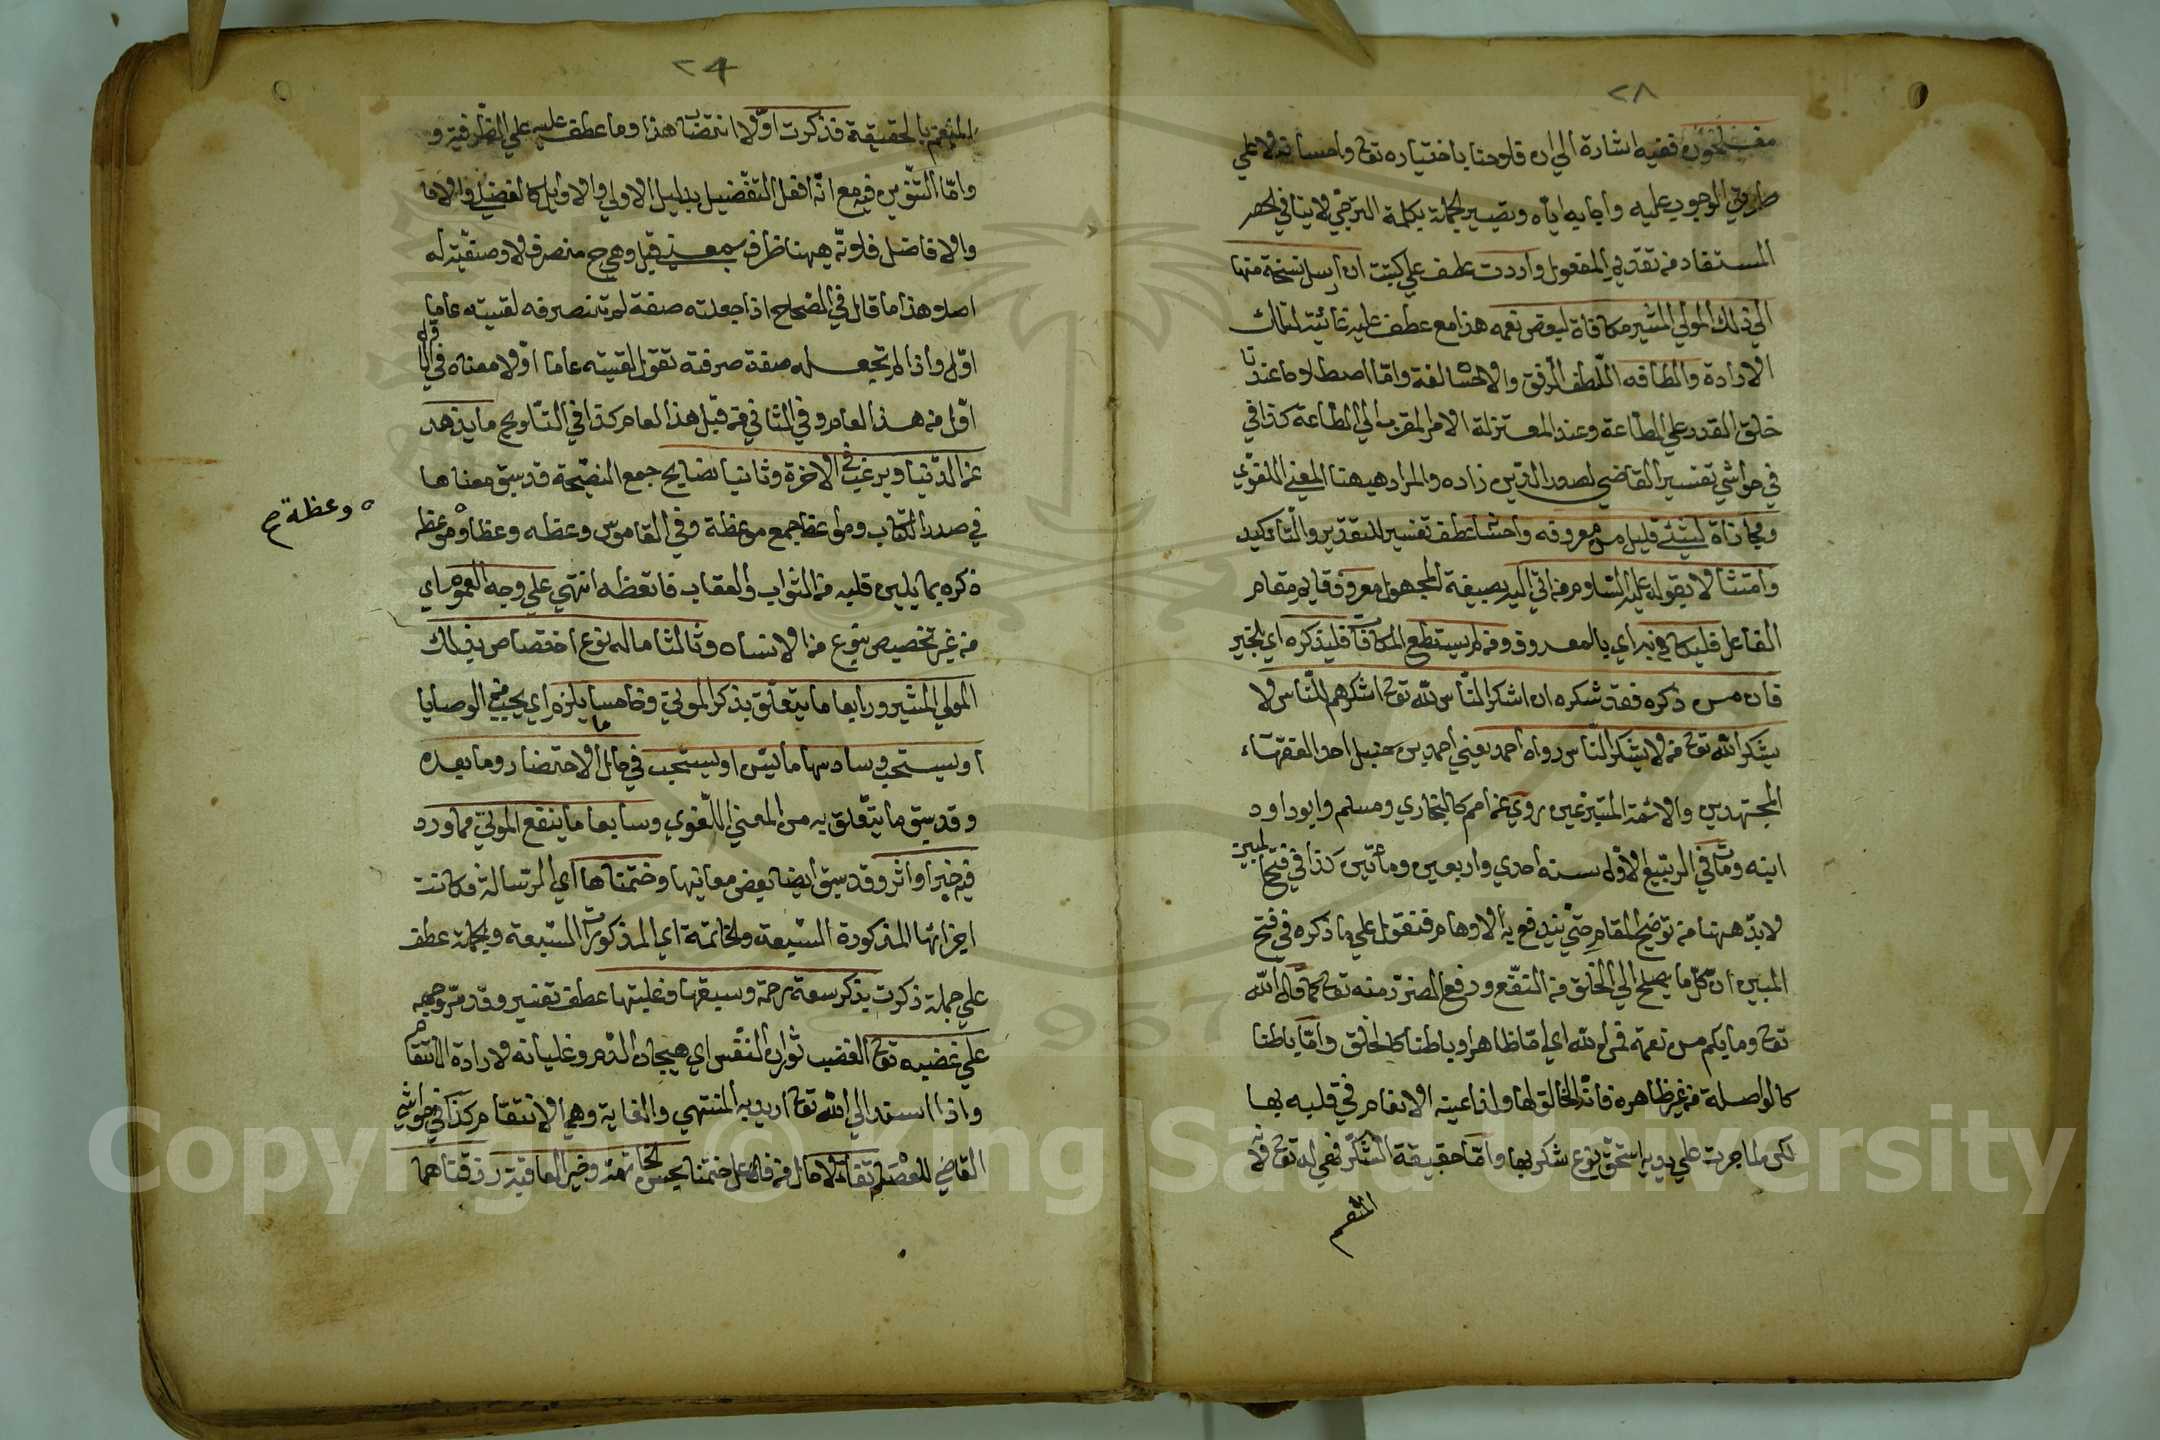 ٢٨
مفلحون ففيه اشارة الي ان فلاحنا باختياره تع واحسانه لا علي
طريق الوجوب عليه وايجابه اياه وتصيير الجملة بكلمة الترجي لا ينافي الحصر
المستفاد من تقديم المفعول واردت عطف علي كتبت ان ارسل نسخة منها
الي ذلك المولي المشير مكافاة لبعض نعمه هذا مع عطف عليه غائية لتلك
الارادة والطافه اللطف الرفق والاحسا لغة وامّا اصطلاحا عندنا
خلق القدر علي الطاعة وعند المعتزلة الامر المقرب الي الطاعة كذا في
في حواشي تفسير القاضي لصدر الدين زاده والمراد ههنا المعني اللغوي
ومجازاة لشيء قليل من معروفه واحسا عطف تفسير للتقرير والتاكيد
وامتثالا بقوله عليه السلام من اتي اليه بصيغة المجهول معروف قايم مقام
الفاعل فليكافي به اي بالمعروف ومن لم يستطع المكافات فليذكره اي بالخير
فان من ذكره فقد شكره ان اشكر النّاس لله تع اشكرهم للنّاس ولا
يشكر الله تع من لا يشكر النّاس رواه احمد يعني احمد بن حنبل احد الفقهاء
المجتهدين والائمة المتبرعين روي عنه امم كالبخاري ومسلم وابو داود
ابنه ومات في الربيع الاول سنة احدي واربعين ومأتين كذا في فتح المبين
لا بدّ ههنا من توضيح المقام حتي يندفع به الاوهام فنقول علي ما ذكره في فتح
المبين ان كل ما يصل الي الخلق من النفع ودفع الضرّ منه تع كما قال الله
تع وما بكم من نعمة فمن الله اي امّا ظاهرا وباطنا كالخالق وامّا باطنا
كالواصلة من غير ظاهره فانه الخالق لها ولداعية الانعام في قلبه بها
لكن لما جرت علي يديه استحق نوع شكر بها وامّا حقيقة الشكر فهي له تع لانه
المنعم
٢٩
المنعم بالحقيقة فذكرت اوّلا انتصاب هذا وما عطف عليه علي الظرفية و
وامّا التنوين فيه مع انّه افعل التفضيل بدليل الاولي والاوايل كالفضلي والافا
والافاضل فلانّه ههنا ظرف بمعني قبل وهي ح منصرف لا وصفية له
اصلا وهذا ما قال في الصّحاح اذا جعلته صفة لم تنصرفه لقيته عاما
اوّل واذا لم تجعله صفة صرفته تقول لقيته عاما اوّلا ومعناه في الاول
اوّل من هذا العام وفي الثاني من قبل هذا العام كذا في التلويح ما يزهد
عن الدّنيا ويرغب في الاخرة وثانيا نصايح جمع النصيحة قد سبق معناها
في صدر الكتاب ومواعظ جمع موعظة وفي القاموس وعظه وعظا وموعظة
وعظة صح
ذكره بما يلين قلبه من الثواب والعقاب فاتعظه انتهي علي وجه العموم اي
من غير تخصيص بنوع من الانسان وثالثا ما له نوع اختصاص بذلك
المولي المشير ورابعا ما يتعلق بذكر الموتي وخامسا ما يلزم اي يجب في الوصايا
او يستحب وسادسها ما يسن او يستحب في حال الاحتضار وما بعده
وقد سبق ما يتعلق به من المعني اللغوي وسابعا ما ينفع الموتي مما ورد
فيه خبر او اثر وقد سبق ايضا بعض معانيها وختمناها اي الرسالة فكانت
اجزائها المذكورة السبعة والخاتمة اي المذكورات السبعة والجملة عطف
علي جملة ذكرت بذكر سعة رحمة وسبقها وغلبتها عطف تفسير وقد مرّ وجهه
علي غضبه تع الغضب ثوران النفس اي هيجان الدّم وغليانه لارادة الانتقام
واذا اسند الي الله تع اريد به المنتهي والغاية وهي الانتقام كذا في حواشي
القاضي للعصام تفاؤلا حال من فاعل ختمنا بحسن الخاتمة وخير العاقبة رزقناهما
Copyright © King Saud University
1957